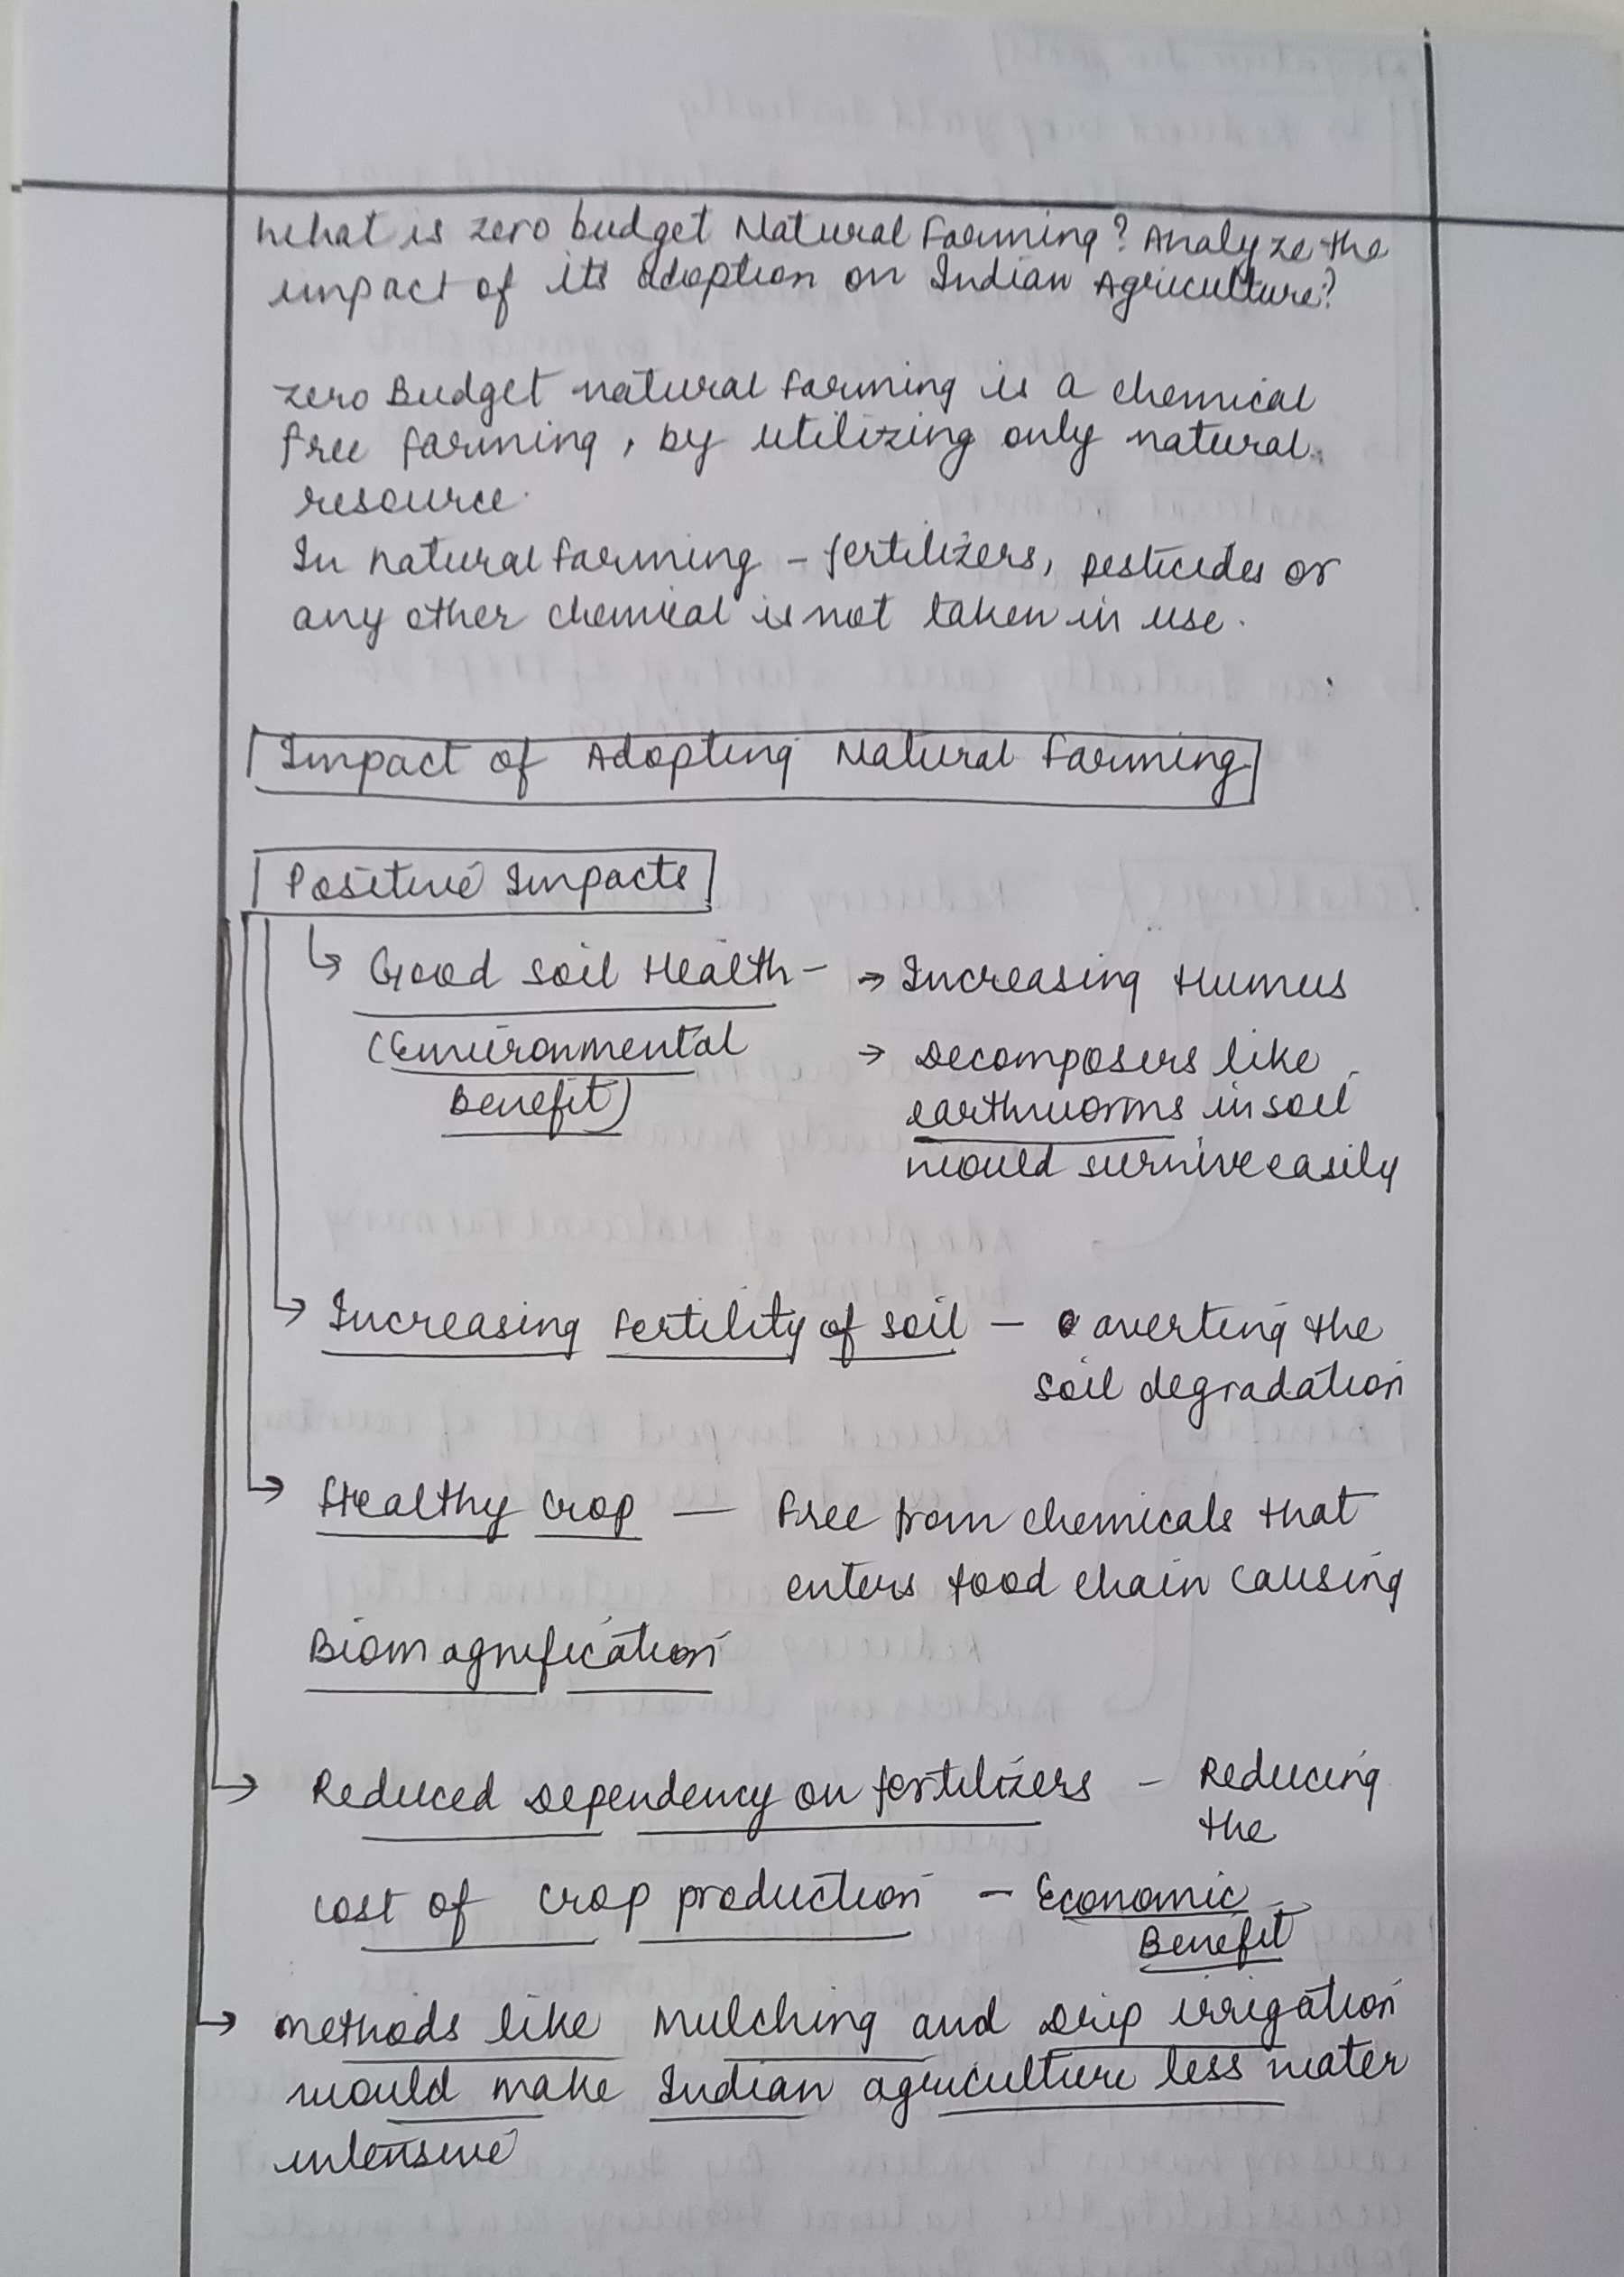 What is zero budget Natural Farming? Analyze the
impact of its adoption on Indian Agriculture?
Zero Budget natural farming is a chemical
free farming, by utilizing only natural
resource.
In natural farming – fertilizers, pesticides or
any other chemical is not taken in use.
Impact of Adopting Natural Farming
Positive Impacts
↳ Good soil Health – → Increasing Humus
(Environmental
Benefit)
→ Decomposers like
earthworms in soil
would survive easily
→ Increasing fertility of soil – averting the
soil degradation
→ Healthy crop — Free from chemicals that
enters food chain causing
Biomagnification
→ Reduced Dependency on fertilizers – Reducing
the
cost of crop production – Economic
Benefit
→ methods like Mulching and Drip irrigation
would make Indian agriculture less water
intensive